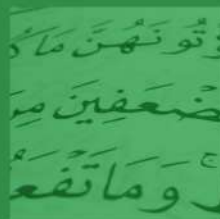 تُونَهُنَّ مَا
ضْعَفِينَ مِنَ
وَمَا تَفْعَ